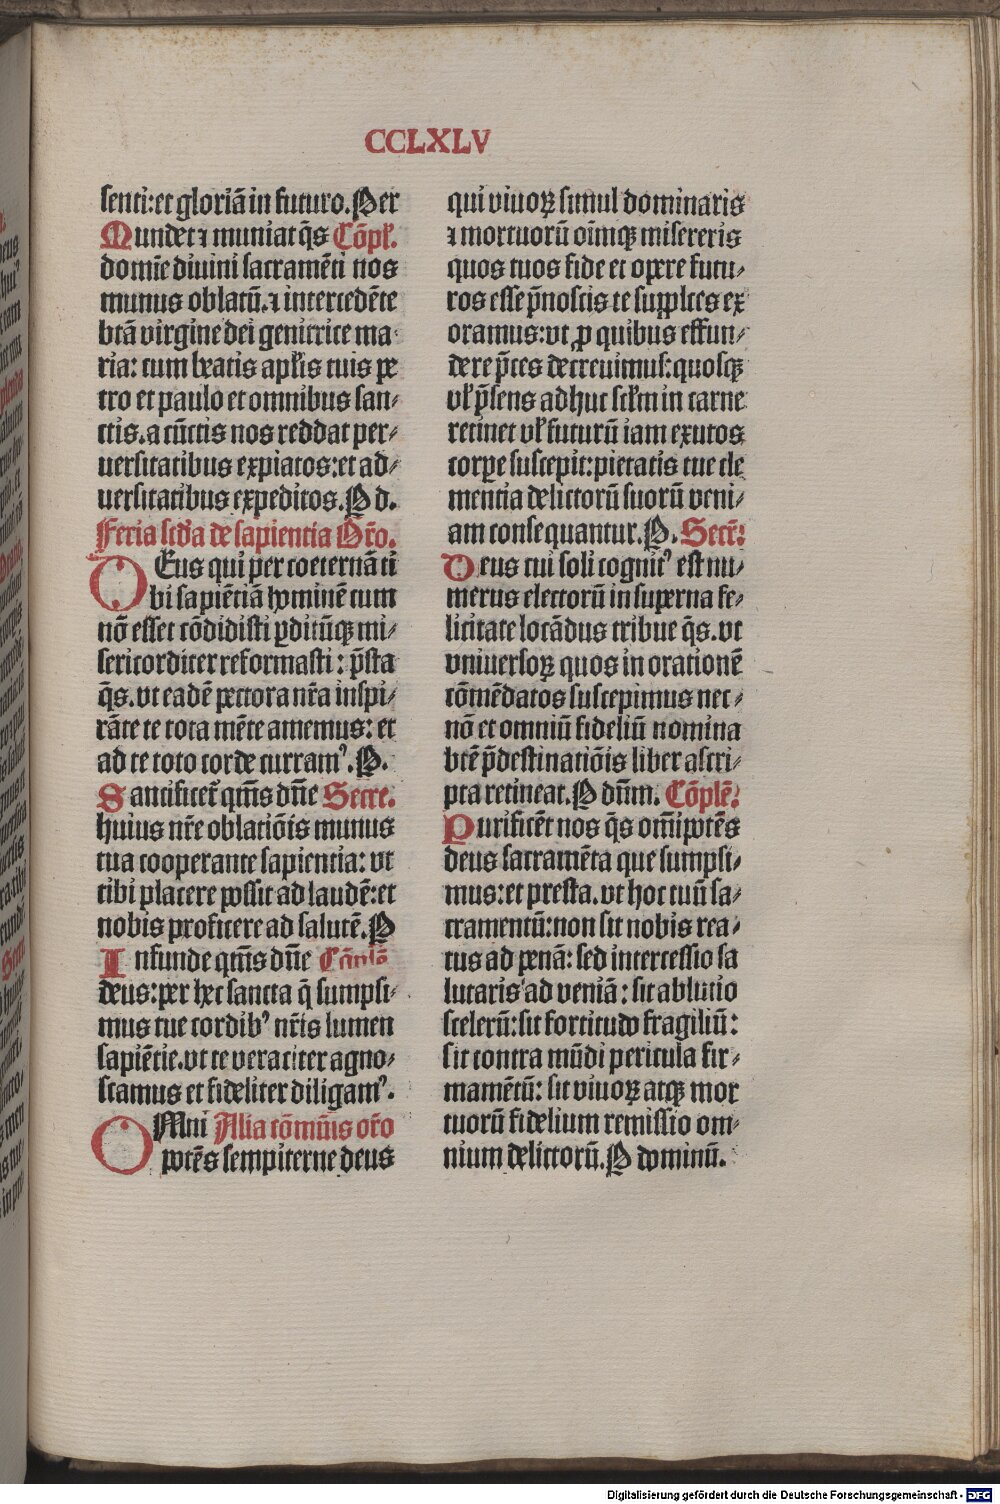 CCLXLV
senti:et gloriā in futuro.Per
Mundet ⁊ muniat q̄s Cōpl̄.
domīe diuini sacramēti nos
munus oblatū.⁊ intercedēte
btā virgine dei genitrice ma-
ria: cum beatis apl̄is tuis pe
tro et paulo et omnibus san-
ctis.a cūctis nos reddat per-
uersitatibus expiatos:et ad-
uersitatibus expeditos.P d.
Feria scd̄a de sapientia Or̄o.
DEus qui per coeternā ti
bi sapiētiā hominē cum
nō esset cōdidisti ꝑditūqꝫ mi-
sericorditer reformasti: p̄sta
q̄s.vt eadē pectora nr̄a inspi-
rāte te tota mēte amemus: et
ad te toto corde curramꝰ.P.
Sanctificet̄ qm̄s dn̄e Secre.
huius nr̄e oblatiōis munus
tua cooperante sapientia: vt
tibi placere possit ad laudē:et
nobis proficere ad salutē.P
Infunde qm̄s dn̄e Cōplō
deus:per hec sancta q̄ sumpsi-
mus tue cordibꝰ nr̄is lumen
sapiētie.vt te veraciter agno-
scamus et fideliter diligamꝰ.
OMni Alia cōmūis or̄o
potēs sempiterne deus
qui viuoꝝ simul dominaris
⁊ mortuorū oīmqꝫ misereris
quos tuos fide et opere futu-
ros esse p̄noscis te supplices ex
oramus:vt ꝓ quibus effun-
dere p̄ces decreuimus:quosqꝫ
vl̄ p̄sens adhuc scl̄m in carne
retinet vl̄ futurū iam exutos
corpe suscepit:pietatis tue cle
mentia delictorū suorū veni-
am consequantur.P. Secr̄:
Deus cui soli cognitꝰ est nu-
merus electorū in superna fe-
licitate locādus tribue q̄s.vt
vniuersoꝝ quos in orationē
cōmēdatos suscepimus nec-
nō et omniū fideliū nomina
btē p̄destinatiōis liber ascri-
pta retineat.P dn̄m. Cōplē:
Purificēt nos q̄s om̄ipotēs
deus sacramēta que sumpsi-
mus:et presta.vt hoc tuū sa-
cramentū:non sit nobis rea-
tus ad penā: sed intercessio sa
lutaris ad veniā: sit ablutio
scelerū:sit fortitudo fragiliū:
sit contra mūdi pericula fir-
mamētū: sit viuoꝝ atqꝫ mor
tuorū fidelium remissio om-
nium delictorū.P dominū.
Digitalisierung gefördert durch die Deutsche Forschungsgemeinschaft - DFG